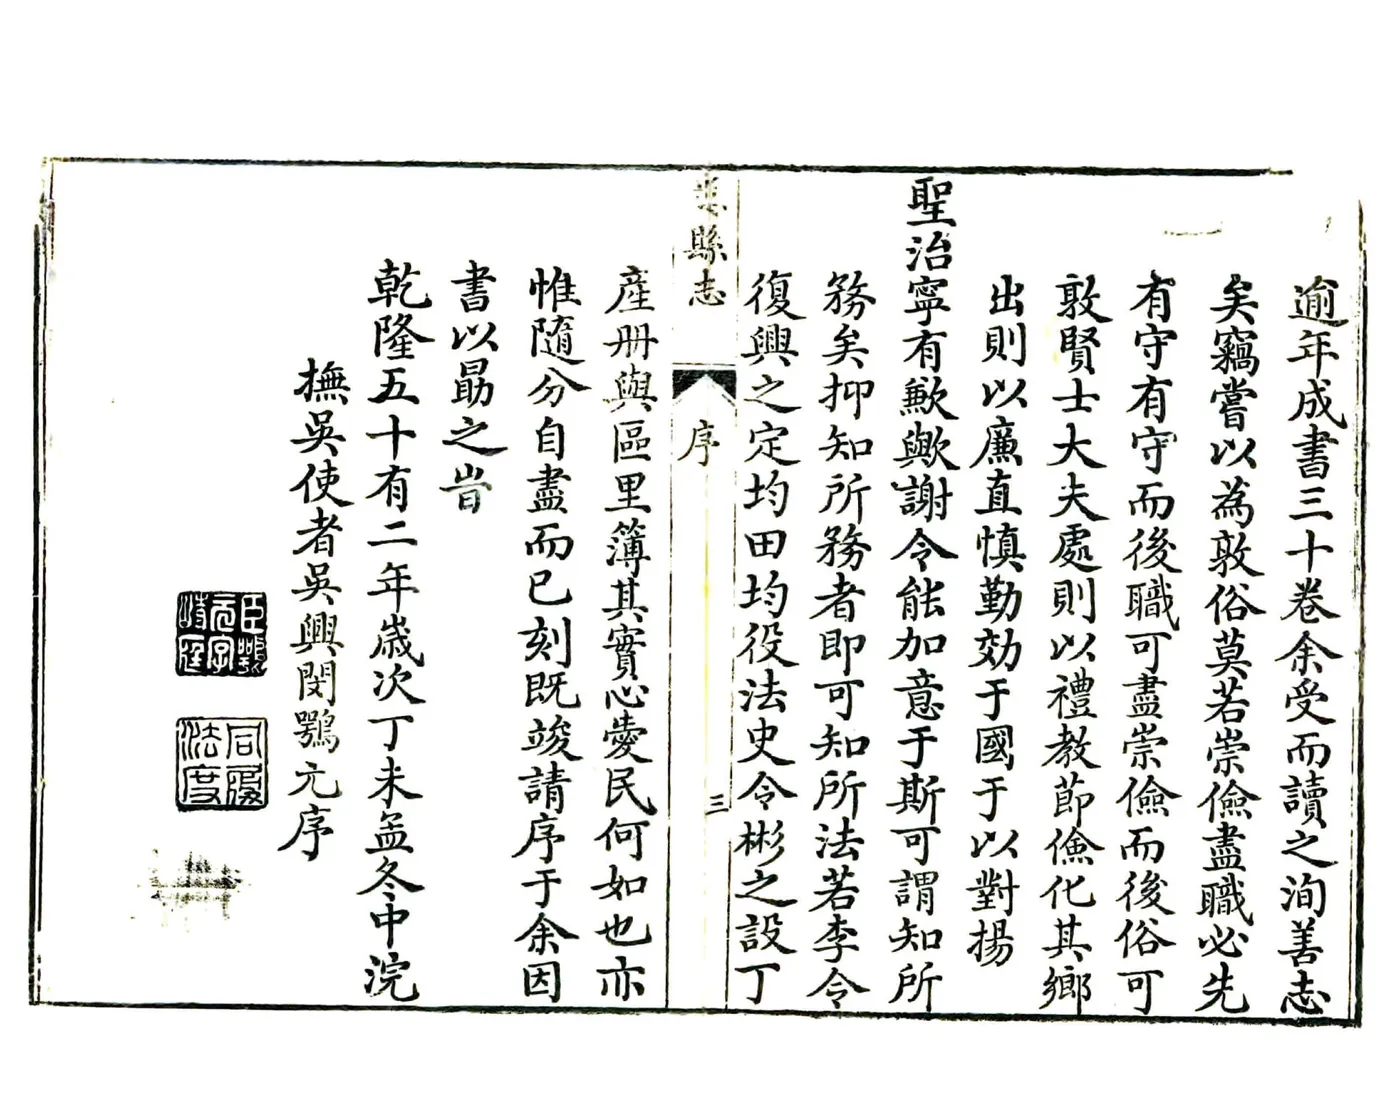 逾年成書三十卷余受而讀之洵善志
矣竊嘗以為敦俗莫若崇儉盡職必先
有守有守而後職可盡崇儉而後俗可
敦賢士大夫處則以禮教節儉化其鄉
出則以廉直慎勤効于國于以對揚
聖治寧有歉歟謝令能加意于斯可謂知所
務矣抑知所務者即可知所法若李令
復興之定均田均役法史令彬之設丁
婁縣志
序
三
產册與區里簿其實心愛民何如也亦
惟隨分自盡而已刻既竣請序于余因
書以勗之旹
乾隆五十有二年歲次丁未孟冬中浣
撫吳使者吳興閔鶚元序
臣鶚
元字
峙庭
法度